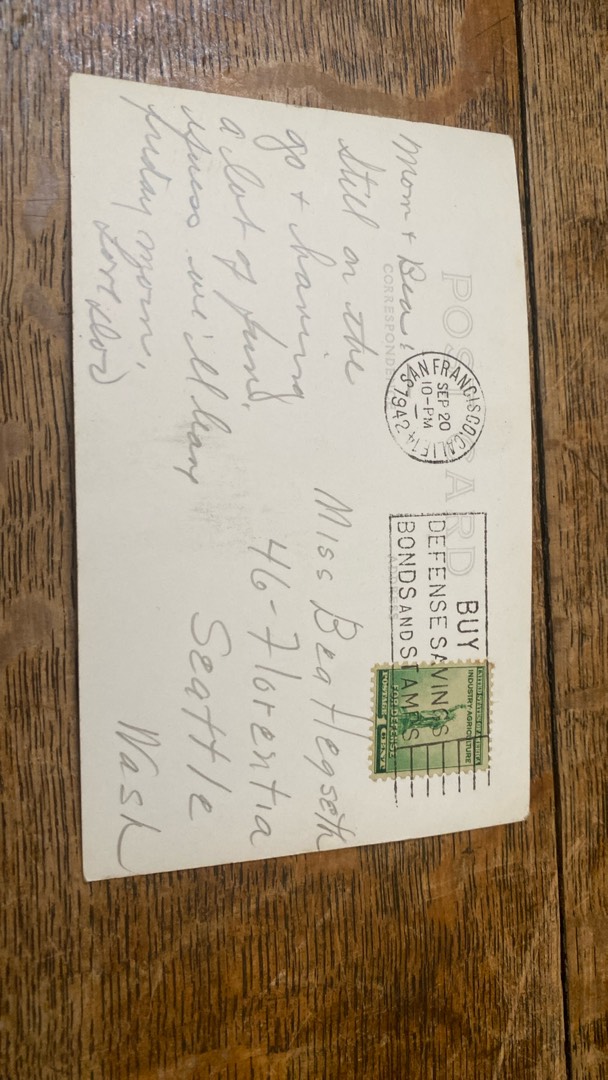 POST CARD
CORRESPONDE
ADDRESS
Mom & Bea:
Still on the
go & having
a lot of fun.
we'll leave
Friday morn.
Love
SAN FRANCISCO, CALIF. 14
SEP 20
10-PM
1942
BUY
DEFENSE SAVINGS
BONDS AND STAMPS
UNITED STATES OF AMERICA
INDUSTRY-AGRICULTURE
FOR DEFENSE
POSTAGE 1 CENT
Miss Bea Hegseth
46-Florentia
Seattle
Wash